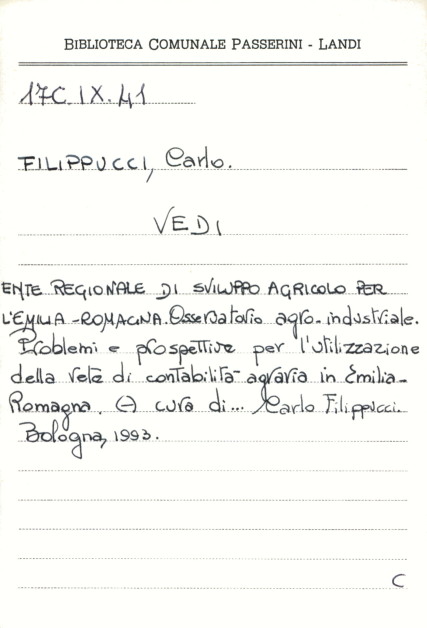 BIBLIOTECA COMUNALE PASSERINI - LANDI
17C.IX.41
FILIPPUCCI, Carlo.
VEDI
ENTE REGIONALE DI SVILUPPO AGRICOLO PER
L'EMILIA-ROMAGNA. Osservatorio agro-industriale.
Problemi e prospettive per l'utilizzazione
della rete di contabilità agraria in Emilia-
Romagna. (-) cura di... Carlo Filippucci.
Bologna, 1993.
C